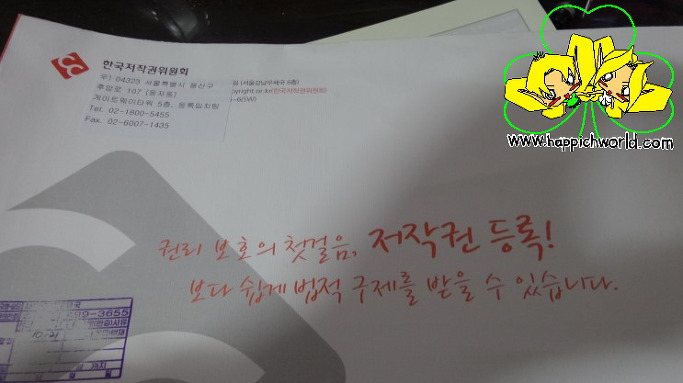 한국저작권위원회
우) 04323 서울특별시 용산구
후암로 107 (동자동)
게이트웨이타워 5층, 등록임치팀
Tel. 02-1800-5455
Fax. 02-6007-1435
(서울강남우체국 6층)
pyright.or.kr(한국저작권위원회)
-6SW)
www.happichworld.com
권리 보호의 첫걸음, 저작권 등록!
보다 쉽게 법적 구제를 받을 수 있습니다.
699-3655